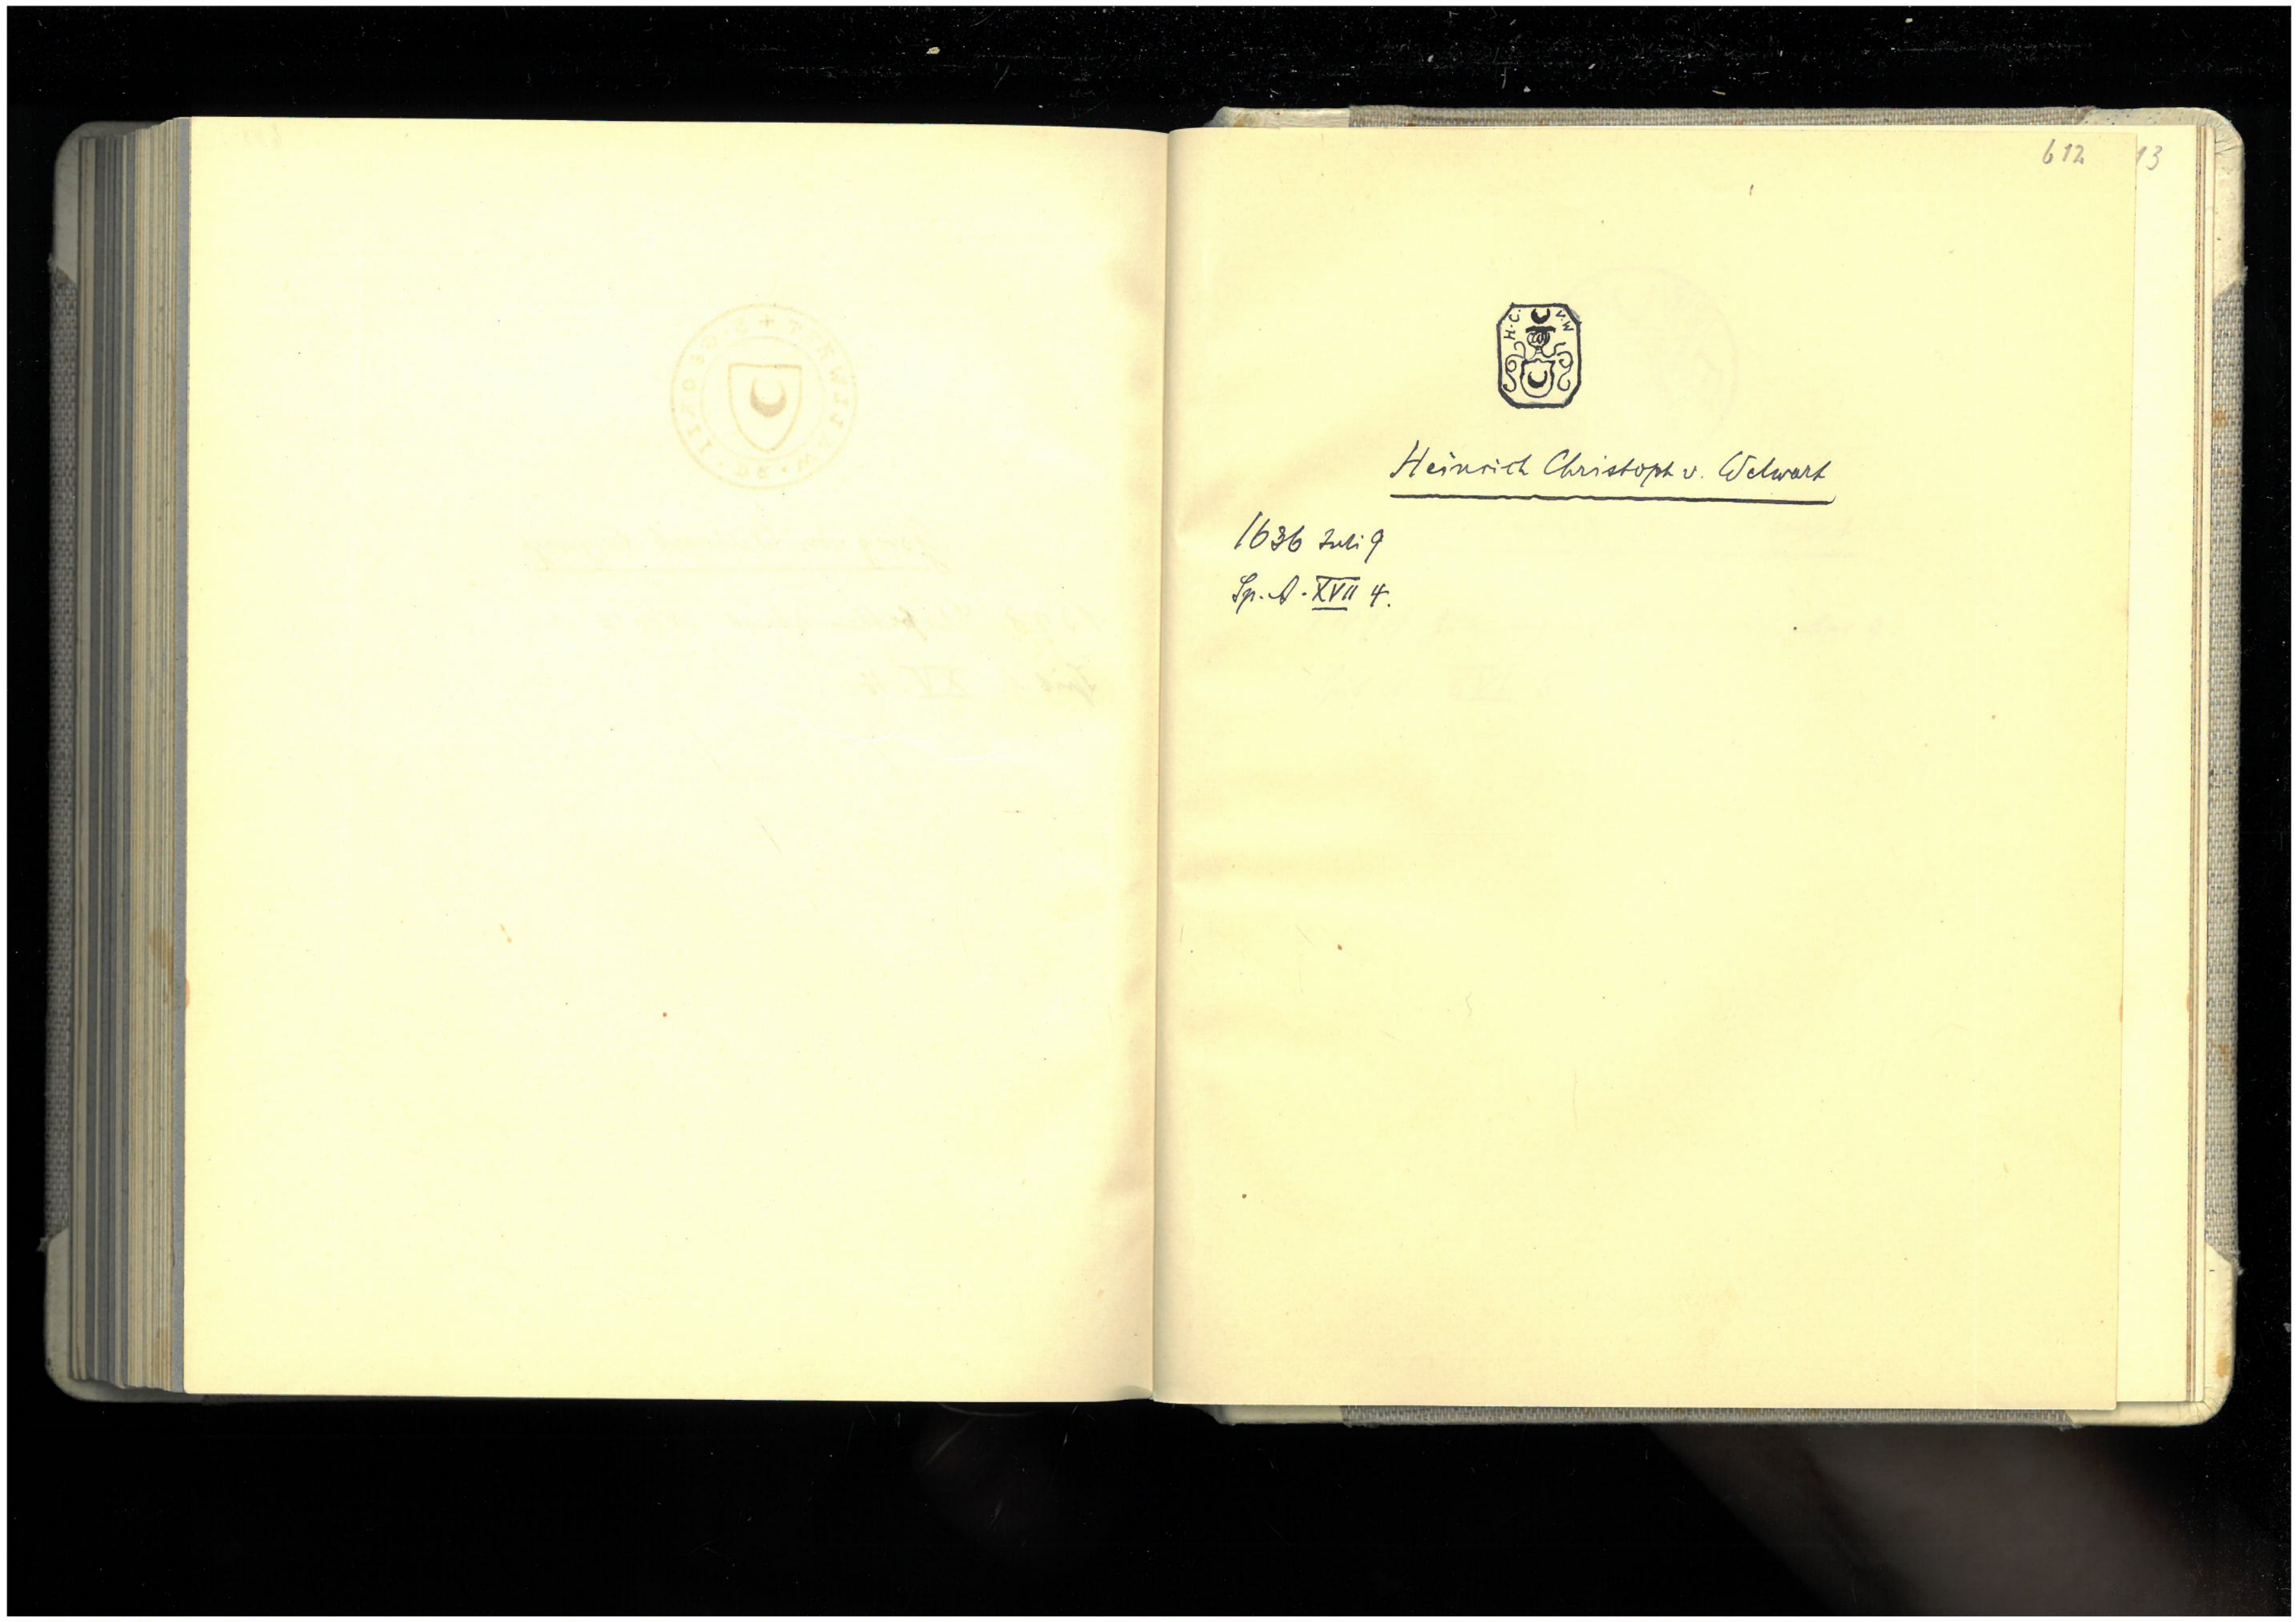 612
13
H. C. V. W
Heinrich Christoph v. Welwart
1636 Juli 9
Sp. A. XVII 4.